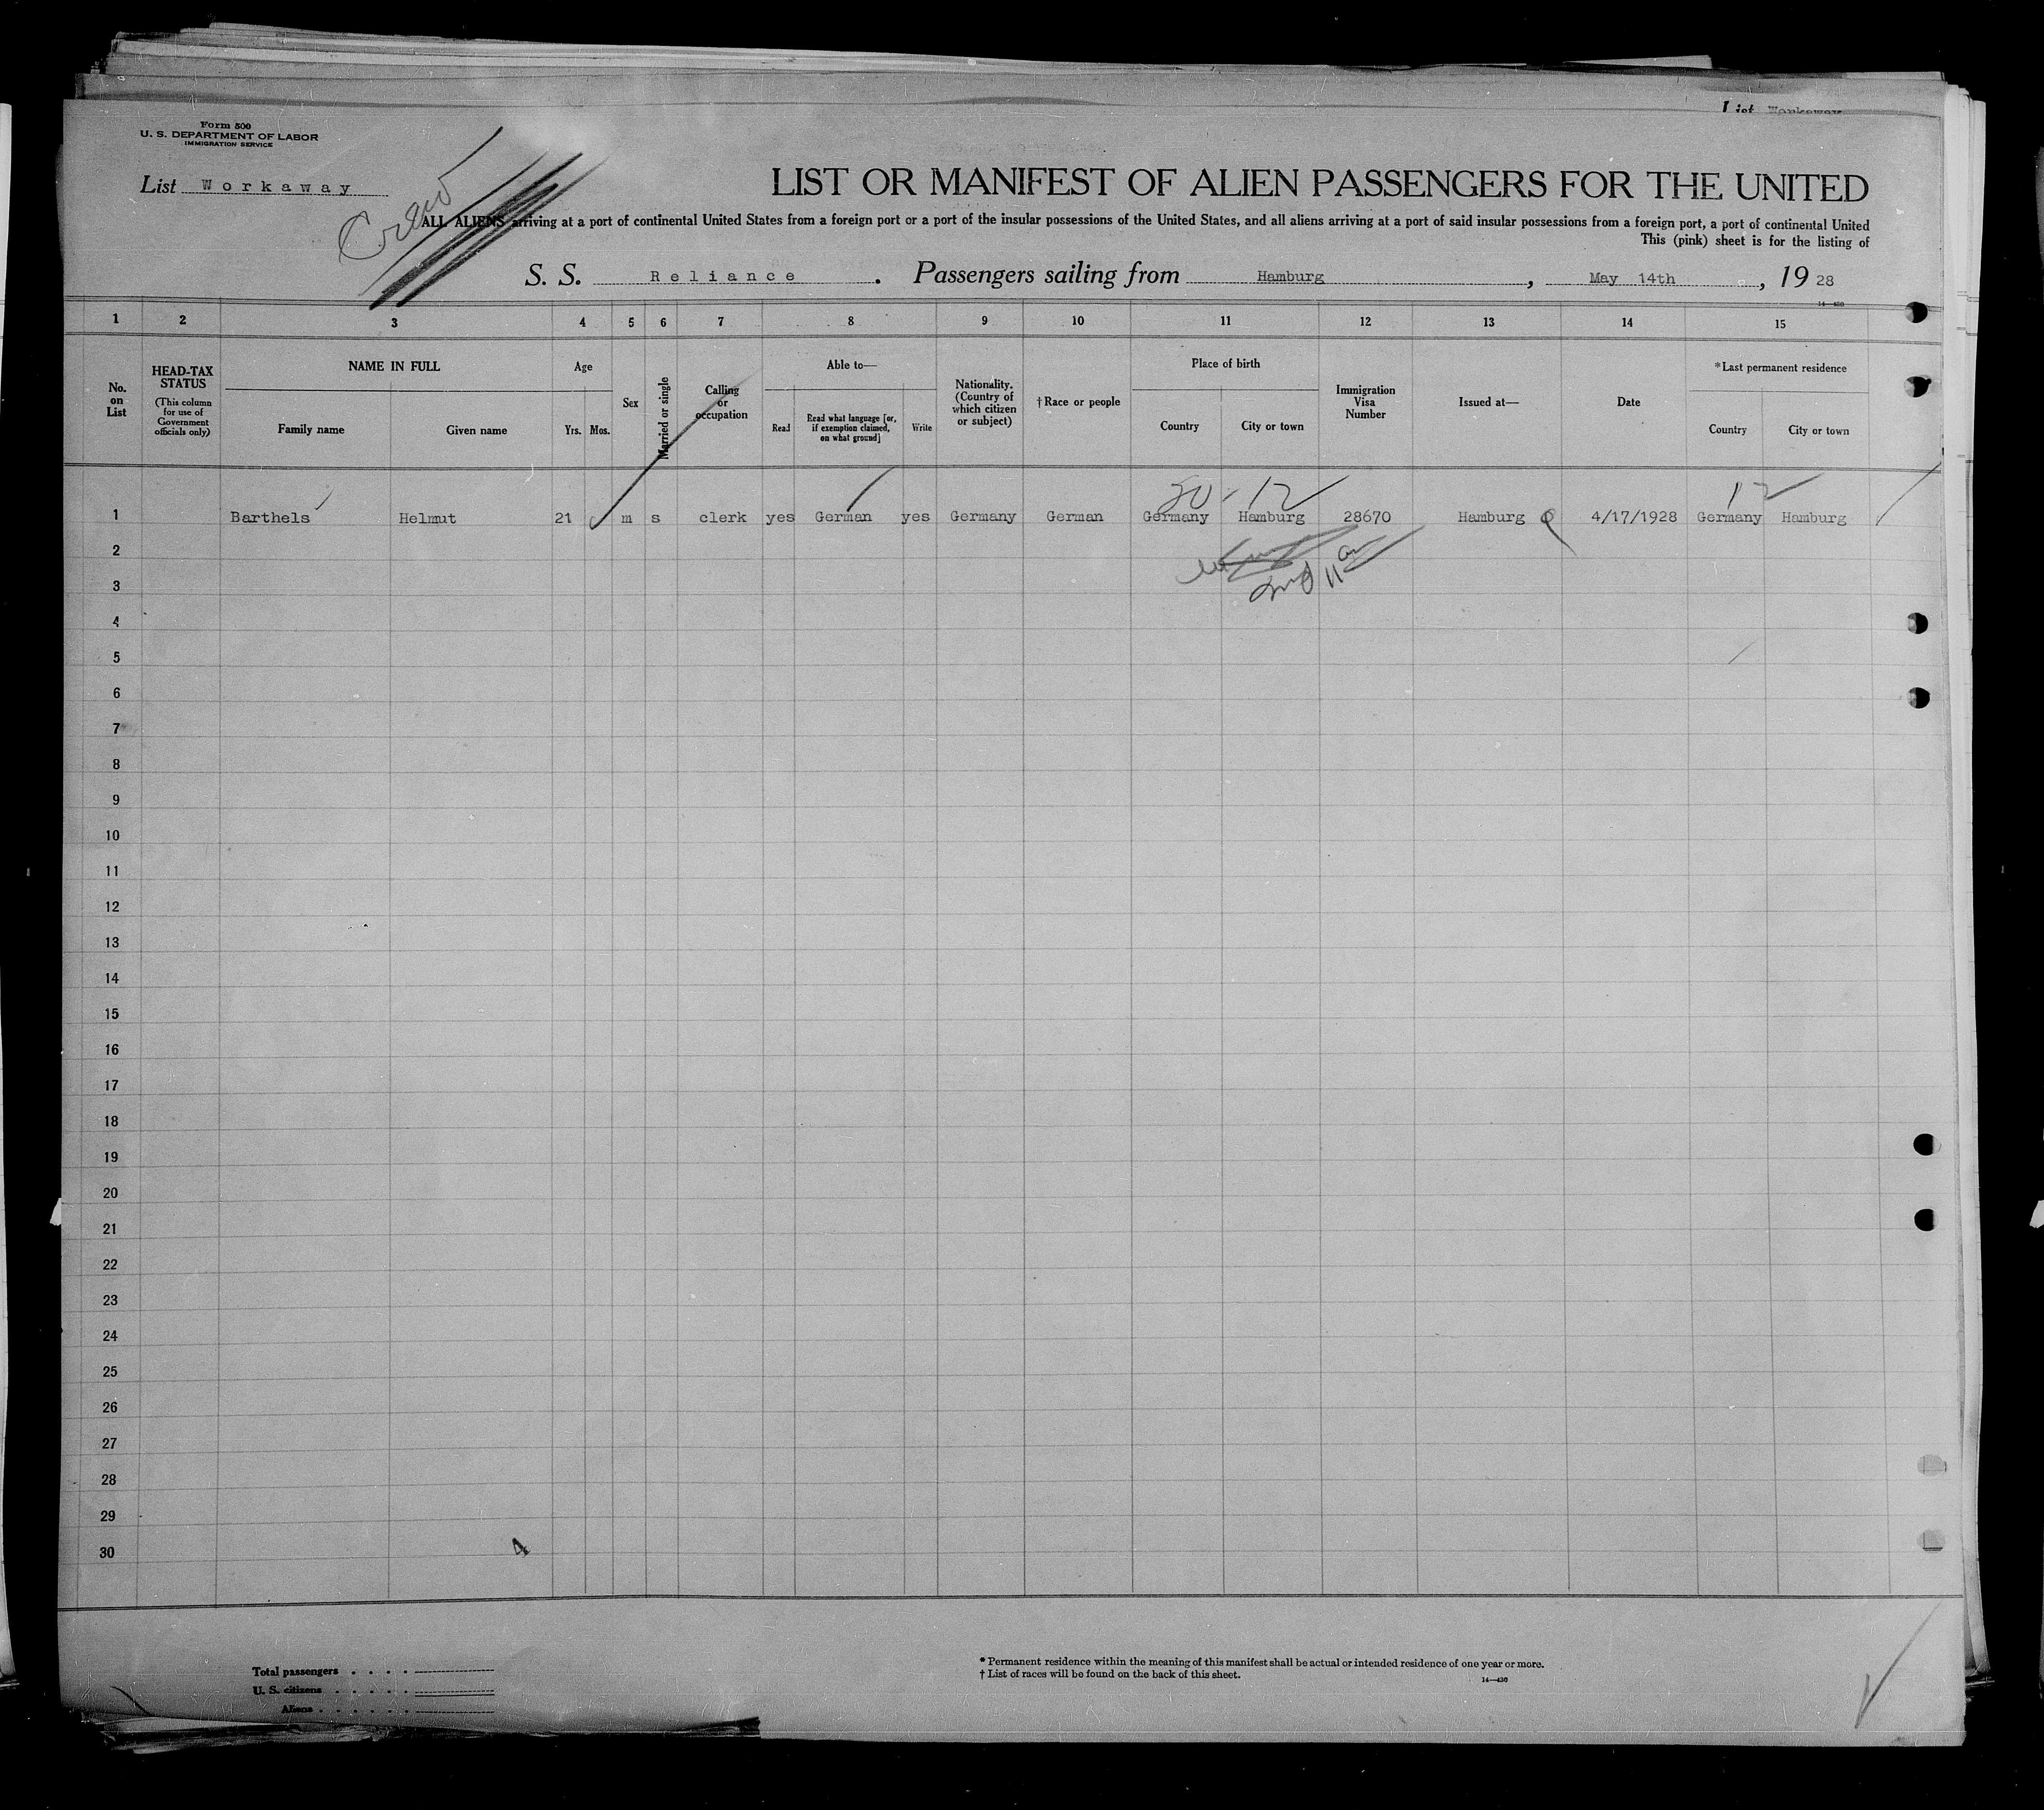 List Workaway
Form 500
U. S. DEPARTMENT OF LABOR
IMMIGRATION SERVICE
List Workaway
Crew
LIST OR MANIFEST OF ALIEN PASSENGERS FOR THE UNITED
ALL ALIENS arriving at a port of continental United States from a foreign port or a port of the insular possessions of the United States, and all aliens arriving at a port of said insular possessions from a foreign port, a port of continental United
This (pink) sheet is for the listing of
S. S. Reliance. Passengers sailing from Hamburg, May 14th, 19 28
14—430
1 2 3 4 5 6 7 8 9 10 11 12 13 14 15
No. on List
HEAD-TAX STATUS
(This column for use of Government officials only)
NAME IN FULL
Family name Given name
Age
Yrs. Mos.
Sex
Married or single
Calling or occupation
Able to—
Read Read what language [or, if exemption claimed, on what ground] Write
Nationality. (Country of which citizen or subject)
†Race or people
Place of birth
Country City or town
Immigration Visa Number
Issued at—
Date
*Last permanent residence
Country City or town
12 12
1 Barthels Helmut 21 m s clerk yes German yes Germany German Germany Hamburg 28670 Hamburg 4/17/1928 Germany Hamburg
2
3
4
5
6
7
8
9
10
11
12
13
14
15
16
17
18
19
20
21
22
23
24
25
26
27
28
29
30
4
Total passengers . . . .
U. S. citizens . . . . .
Aliens . . . . . .
* Permanent residence within the meaning of this manifest shall be actual or intended residence of one year or more.
† List of races will be found on the back of this sheet.
14—430